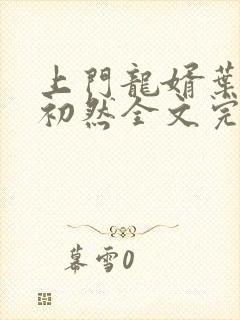 上門龍婿葉
初然全文完
幕雪0